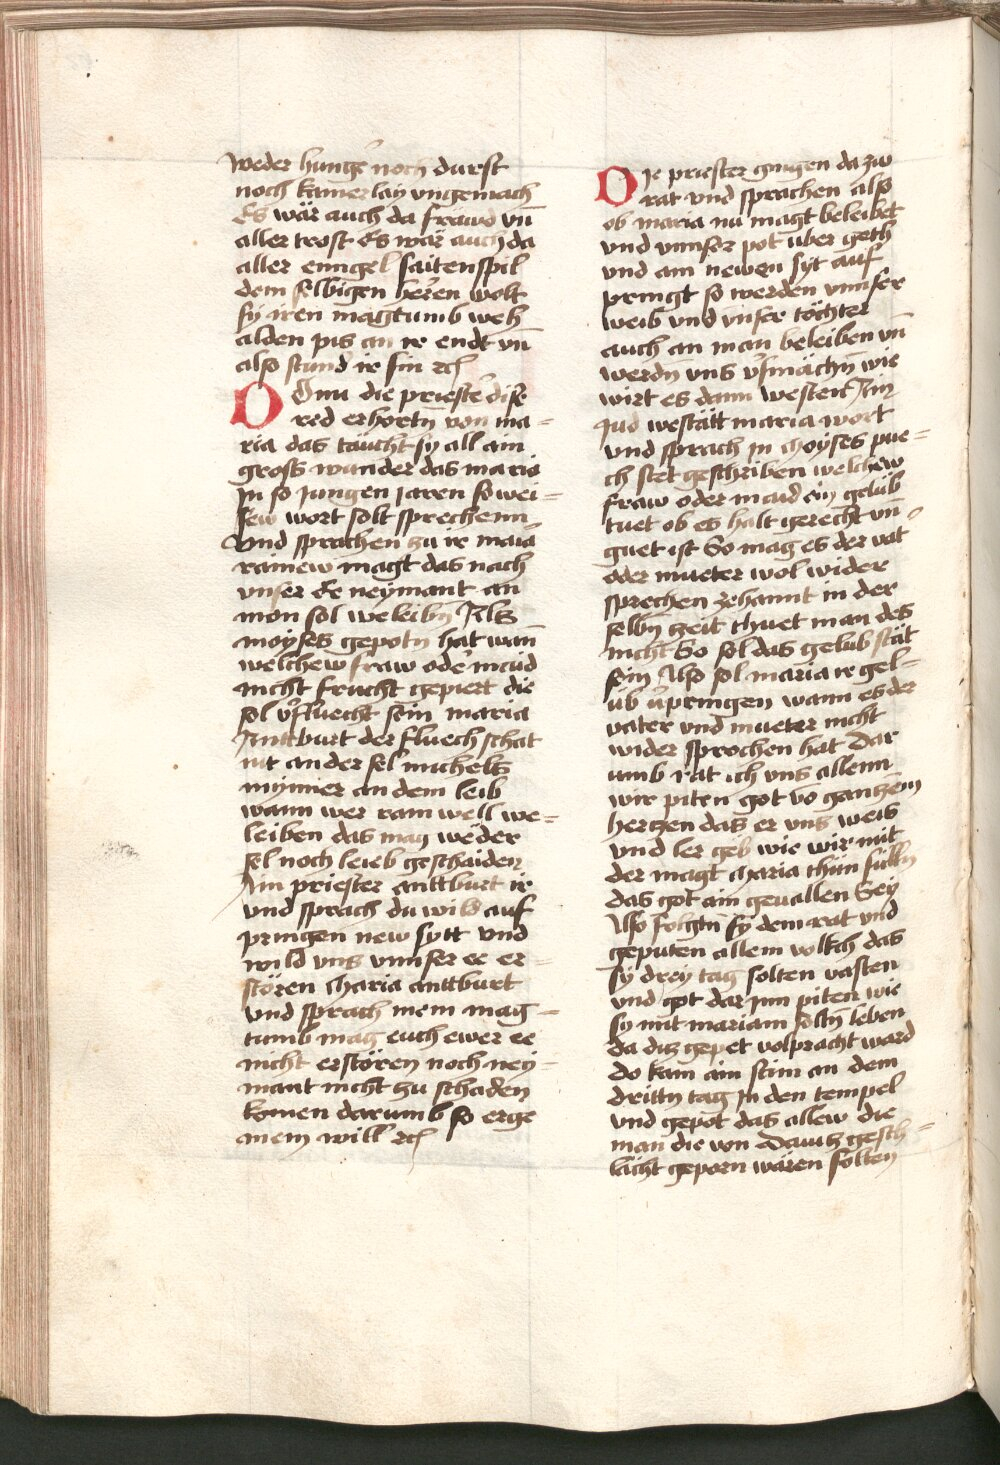 weder hunger noch durst
noch kamerlay vngemach
Es wär auch da fräwd vn̄
aller trost Es wär auch da
aller enngel saitenspil
dem selbigen herren wolt
sy iren magtumb weh
alden pis an ir endt vn̄
also stund ir sin zc
Onu die priester dise
red erhortn̄ von ma=
ria das täucht sy all ain
gross wunder das maria
jn so jungen jaren so wei=
sew wort solt sprechenn
Vnd sprachen zu ir maria
rainew magt das nach
vnser Ee neymant an
mon sol weleibn̄ Als
moyses gepotn̄ hat wan̄
welchew fraw oder maid
nicht frucht gepiert die
sol v̄fluecht sein maria
Anttburt der fluech schat
nit an der sel nichels
mynner an dem leib
wann wer rain well we=
leiben das mag weder
sel noch leieb geschaiden
Ain priester anttburt ir
vnd sprach du wild auf
pringen new sytt vnd
wild vns vnnser ee er=
stören Maria anttburt
vnd sprach mein mag=
tumb mag euch ewer ee
nicht erstören noch ney=
mant nicht zu schaden
komen darumb so erge
mein will zc
Die priester gingen da zw
rat vnd sprachen also
ob maria nu magt beleibet
vnd vnnser pot über geth
vnd ain newen syt auf
pringt so werden vnnser
weib vnd vnser töchter
auch an man beleiben vn̄
werdn̄ vns v̄smächn̄ wie
wirt es dann westen Ain
jud westätt maria wort
vnd sprach jn Moyses pue=
ch stet geschriben welchew
fraw oder maid ein gelüb
tuet ob es halt gerecht vn̄
guet ist So mag es der vat
oder mueter wol wider
sprechen zehannt in der
selbn̄ zeit thuet man des
nicht So sol das gelub stät
sein Also sol maria ir gel=
üb v̄pringen wann es der
vater vnd mueter nicht
wider sprochen hat Dar
umb rat ich vns allenn
wir piten got vo ganczem
herczen das er vns weis
vnd ler geb wie wir mit
der magt Maria thün sülln̄
das got ain geuallen Sey
Also folgtn̄ sy dem rat vnd
geputen allem volkch das
sy drey tag solten vasten
vnd got dar jnn piten wie
sy mit mariam soltn̄ leben
da dicz gepet volpracht ward
do kam ain stim an dem
drittn̄ tag jn den tempel
vnd gepot das allew die
man die von Dauicz gesch=
lächt geporn wären solten